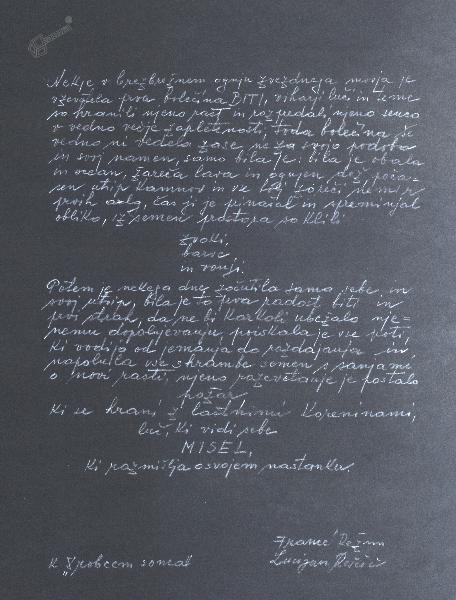 Nekje v brezbrežnem ognju zvezdnega morja je
vzevetela prva bolečina BITI, viharji luči in teme
so hranili njeno rast in razpredali njeno senco
v vedno večje zapletenosti, toda bolečina še
vedno ni vedela zase, ne za svojo podobo
in svoj namen, samo bila je: bila je obala
in ocean, žareča lava in ognjen dež, poča-
sen utrip kamnov in ve bolj zoreči nemir
prvih alg, čas ji je pinašal in spreminjal
obliko, iz semen prostora so klili
zvoki,
barve,
in vonji.
Potem je nekega dne začutila samo sebe in
svoj utrip, bila je to prva radost biti in
prvi strah, da ne bi karkoli ubežalo nje=
nemu dopolnjevanju poiskala je vse poti,
ki vodijo od jemanja do razdajanja in
napolnila vse shrambe semen s sanjami
o novi rasti, njeno razcvetanje je postalo
požar,
ki se hrani z lastnimi koreninami,
luč, ki vidi sebe
MISEL,
ki razmišlja o svojem nastanku.
France
Lucijan
K